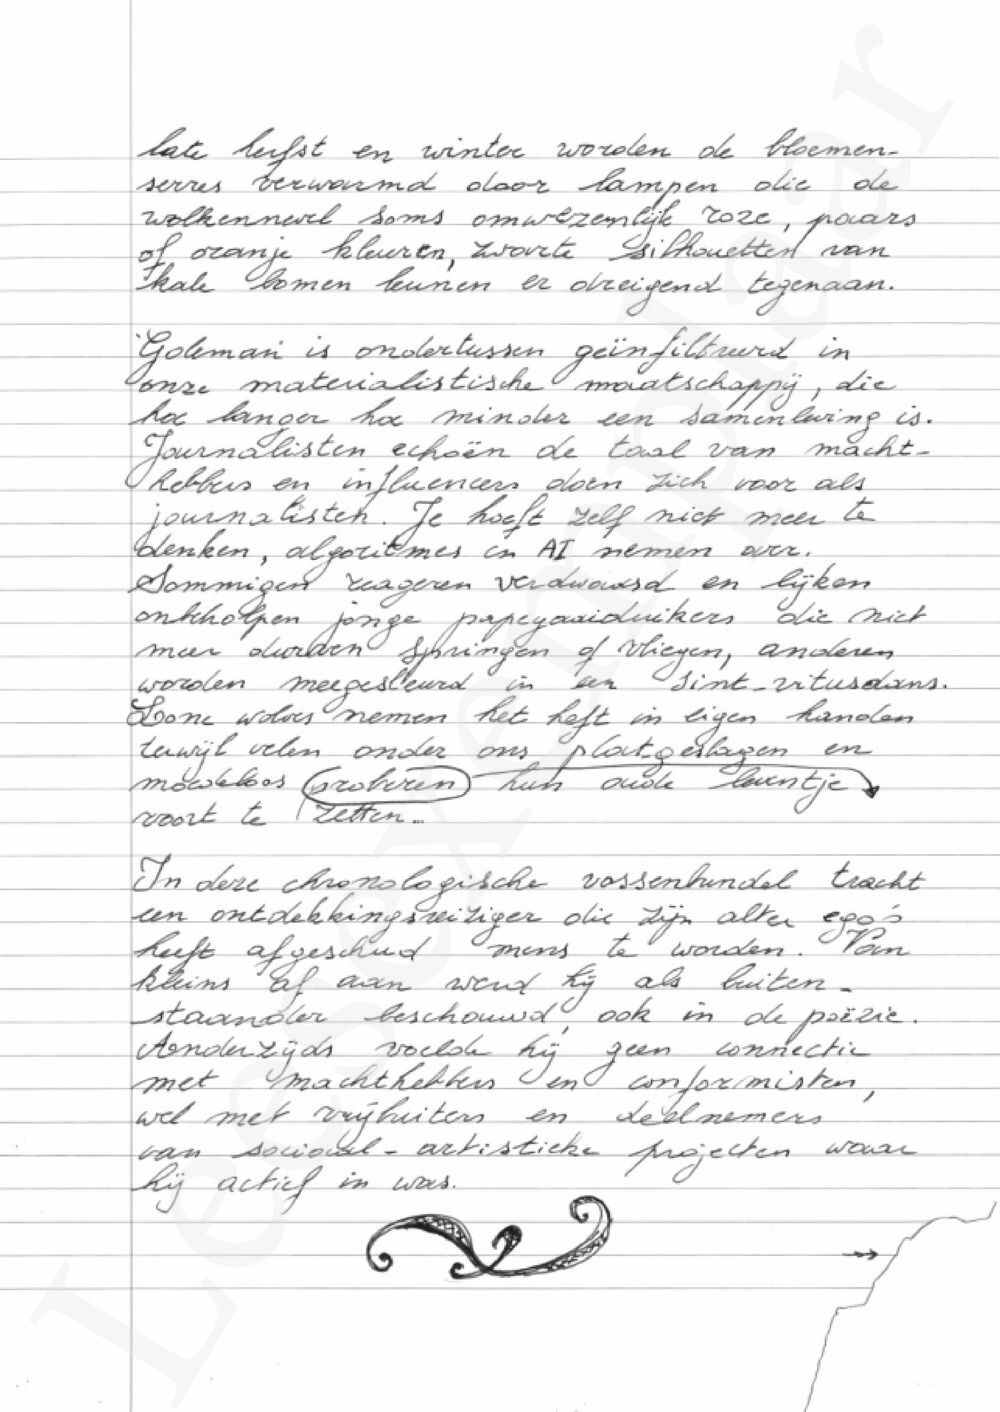 late herfst en winter worden de bloemen-
serres verwarmd door lampen die de
wolkennevel soms onwezenlijk roze, paars
of oranje kleuren, zwarte silhouetten van
kale bomen leunen er dreigend tegenaan.
'Goleman' is ondertussen geïnfiltreerd in
onze materialistische maatschappij, die
hoe langer hoe minder een samenleving is.
Journalisten echoën de taal van macht-
hebbers en influencers doen zich voor als
journalisten. Je hoeft zelf niet meer te
denken, algoritmes en AI nemen over.
Sommigen reageren verdwaasd en lijken
onbeholpen jonge papegaaiduikers die niet
meer durven springen of vliegen, anderen
worden meegesleurd in een sint-vitusdans.
Lone wolves nemen het heft in eigen handen
terwijl velen onder ons platgeslagen en
moedeloos proberen hun oude leventje
voort te zetten...
In deze chronologische vossenbundel tracht
een ontdekkingsreiziger die zijn alter ego's
heeft afgeschud mens te worden. Van
kleins af aan werd hij als buiten-
staander beschouwd, ook in de poëzie.
Anderzijds voelde hij geen connectie
met machthebbers en conformisten,
wel met vrijbuiters en deelnemers
van sociaal-artistieke projecten waar
hij actief in was.
Leesexemplaar